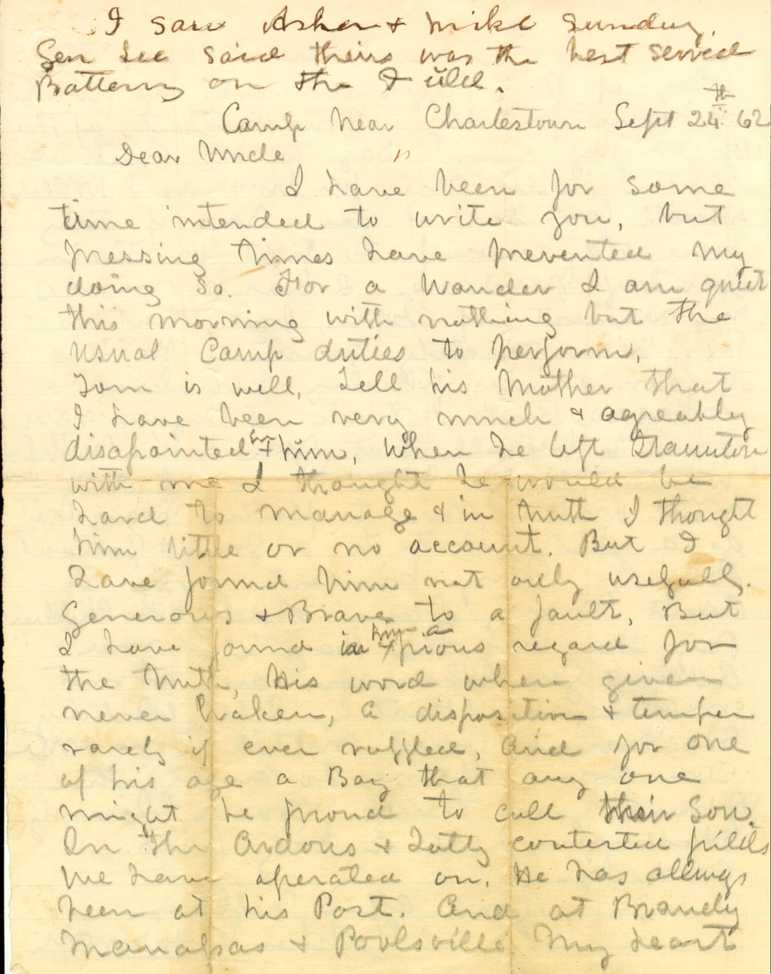 I saw Asher & Mike Sunday.
Gen Lee said theirs was the best served
Battery on the Field.
Camp Near Charlestown Sept 24th 62
Dear Uncle
I have been for some
time intended to write you, but
pressing times have prevented my
doing so. For a wonder I am quiet
this morning with nothing but the
usual Camp duties to perform,
Tom is well, Tell his Mother that
I have been very much & agreably
disapointed in him, When he left Staunton
with me I thought he would be
hard to manage & in truth I thought
him little or no account. But I
have found him not only usefull,
Generous & Brave to a fault, But
I have found in him a pious regard for
the truth, His word when given
never broken, a disposition & temper
rarely if ever ruffled, And for one
of his age a Boy that any one
might be proud to call their Son.
On the Ardous & hotly contested fields
we have operated on, He has allways
been at his Post. And at Brandy
Manassas & Poolsville My heart